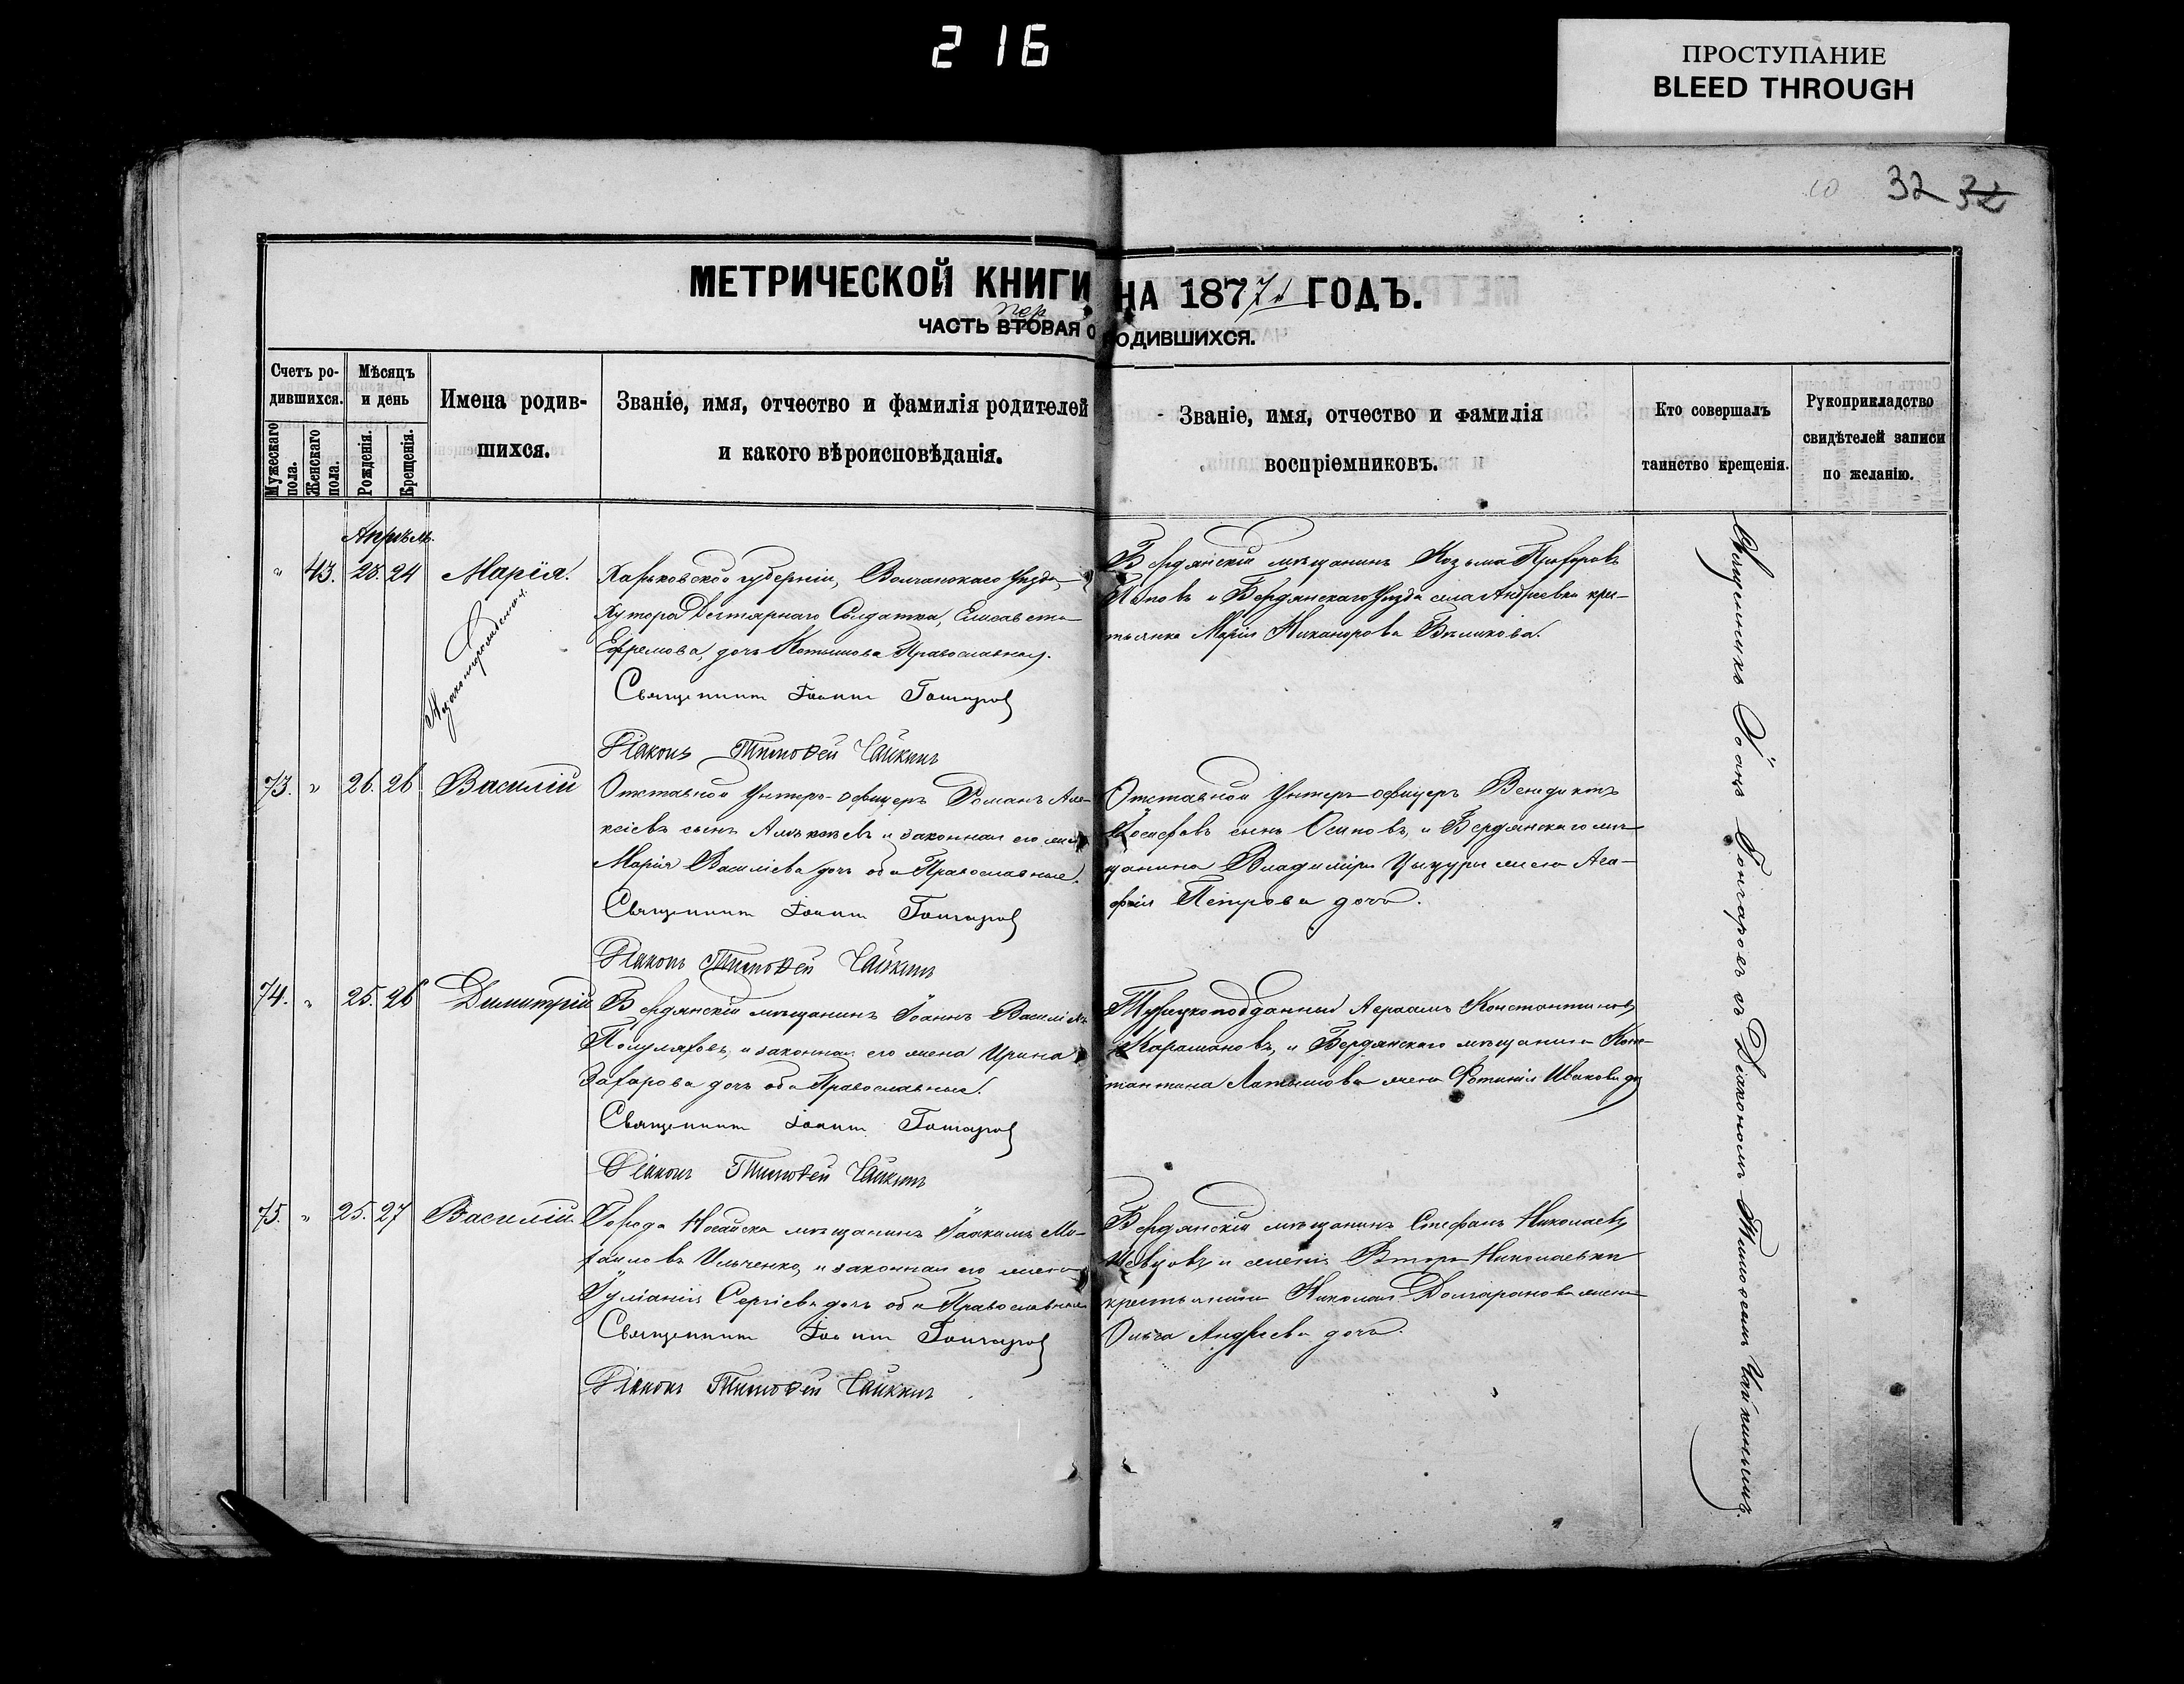 216
ПРОСТУПАНИЕ
BLEED THROUGH
32 32
МЕТРИЧЕСКОЙ КНИГИ НА 1877 ГОДЪ.
пер
ЧАСТЬ ВТОРАЯ О РОДИВШИХСЯ.
Счетъ ро-
дившихся.
Мужескаго пола.
Женскаго пола.
Мѣсяцъ
и день
Рожденія.
Крещенія.
Имена родив-
шихся.
Званіе, имя, отчество и фамилія родителей
и какого вѣроисповѣданія.
Званіе, имя, отчество и фамилія
воспріемниковъ.
Кто совершалъ
таинство крещенія.
Рукоприкладство
свидѣтелей записи
по желанію.
Апрѣль.
" 43. 28. 24 Марія.
Незаконнорожденная.
Харьковской губерніи, Волчанскаго уѣзда
Хутора Дегтярнаго Солдатка, Елисавета
Ефремова, дочь Котышова Православная.
Священникъ Іоаннъ Гончаровъ
Діаконъ Тимоѳей Чайкинъ
Бердянскій мѣщанинъ Козьма
Поповъ и Бердянскаго уѣзда села Андреевки кре-
тьянка Марія Никанорова Бѣликова.
73. " 26. 26 Василій
Отставной Унтеръ-офицеръ Романъ Але-
ксіевъ сынъ Алѣксѣевъ и законная его жена
Марія Василіева дочь оба Православные.
Священникъ Іоаннъ Гончаровъ
Діаконъ Тимоѳей Чайкинъ
Отставной Унтеръ-офицеръ Венедиктъ
Іосифовъ сынъ Осиповъ, и Бердянскаго мѣ-
щанина Владиміра Цыцуры жена Ага-
фія Петрова дочь.
74. " 25. 26 Димитрій
Бердянскій мѣщанинъ Іоаннъ Василіевъ
Полуляховъ, и законная его жена Ирина
Захарова дочь оба Православные.
Священникъ Іоаннъ Гончаровъ
Діаконъ Тимоѳей Чайкинъ
Турецкоподданный Авраамъ Константиновъ
Карамановъ, и Бердянскаго мѣщанина Конс-
тантина Латышова жена Фотинія Иванова до
75. " 25. 27 Василій.
Города Ногайска мѣщанинъ Іоакимъ Ми-
хаиловъ Ильченко, и законная его жена
Іуліанія Сергіева дочь оба Православные
Священникъ Іоаннъ Гончаровъ
Діаконъ Тимоѳей Чайкинъ
Бердянскій мѣщанинъ Стефанъ Николаевъ
Шевцовъ, и селенія Второ-Николаевки
крестьянина Николая жена
Ольга Андреева дочь.
Священникъ Іоанъ Гончаровъ съ Діакономъ Тимоѳеемъ Чайкинымъ.